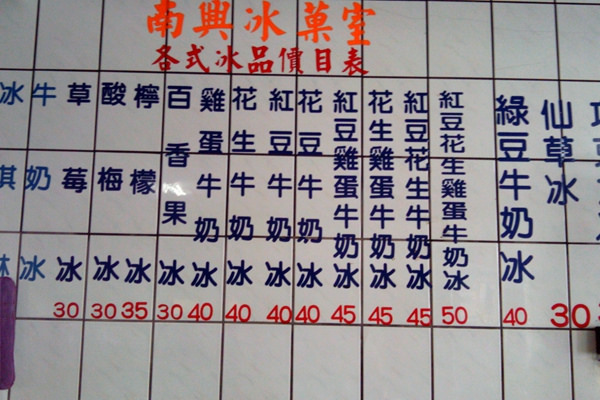 南興冰菓室
各式冰品價目表
冰淇淋
牛奶冰
草莓冰
30
酸梅冰
30
檸檬冰
35
百香果冰
30
雞蛋牛奶冰
40
花生牛奶冰
40
紅豆牛奶冰
40
花豆牛奶冰
40
紅豆雞蛋牛奶冰
45
花生雞蛋牛奶冰
45
紅豆花生牛奶冰
45
紅豆花生雞蛋牛奶冰
50
綠豆牛奶冰
40
仙草冰
30